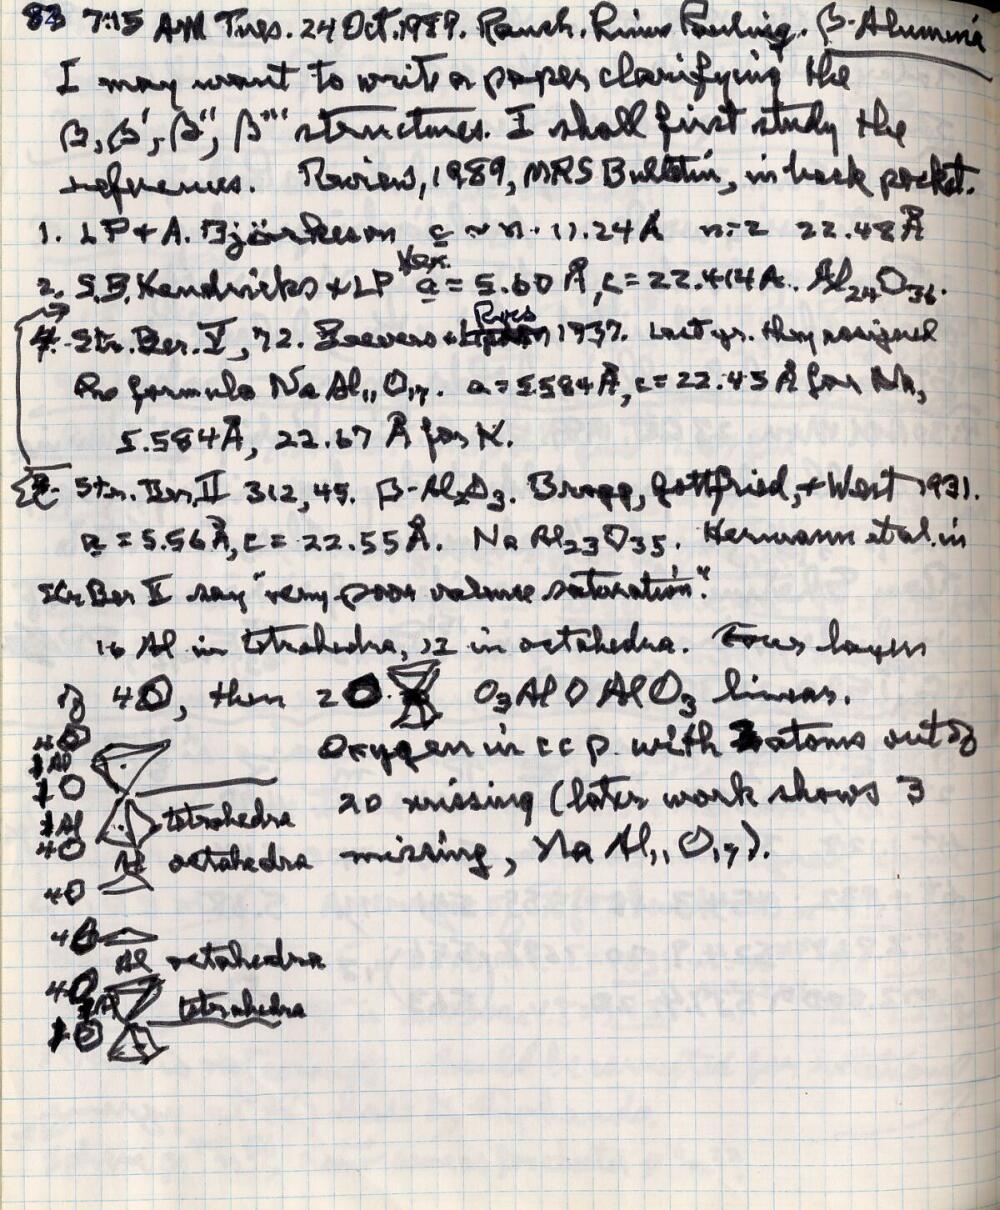 83 7:15 AM Tues. 24 Oct. 1989. Ranch. Linus Pauling. β-Alumina
I may want to write a paper clarifying the
β, β', β'', β''' structures. I shall first study the
references. Reviews, 1989, MRS Bulletin, in back pocket.
1. LP + A. Björkeson c ~ n · 11.24 Å n=2 22.48 Å
2. S.B. Hendricks + LP Hex. a = 5.60 Å, c = 22.414 Å. Al24O36.
4. Str. Ber. V, 72. Beevers + Ross 1937. Last yr. they assigned
the formula NaAl11O17. a = 5.584 Å, c = 22.45 Å for Na,
5.584 Å, 22.67 Å for K.
3. Str. Ber. II 312, 45. β-Al2O3. Bragg, Gottfried, + West 1931.
a = 5.56 Å, c = 22.55 Å. NaAl23O35. Hermann et al. in
Str Ber II say "very poor valence saturation."
16 Al in tetrahedra, 12 in octahedra. Four layers
of 4O, then 2O. O3AlOAlO3 linear.
Oxygen in ccp. with 2 atoms out of
20 missing (later work shows 3
missing, NaAl11O17).
4O
Al
O
Al tetrahedra
4O
Al octahedra
4O
4O
Al octahedra
4O
Al tetrahedra
O